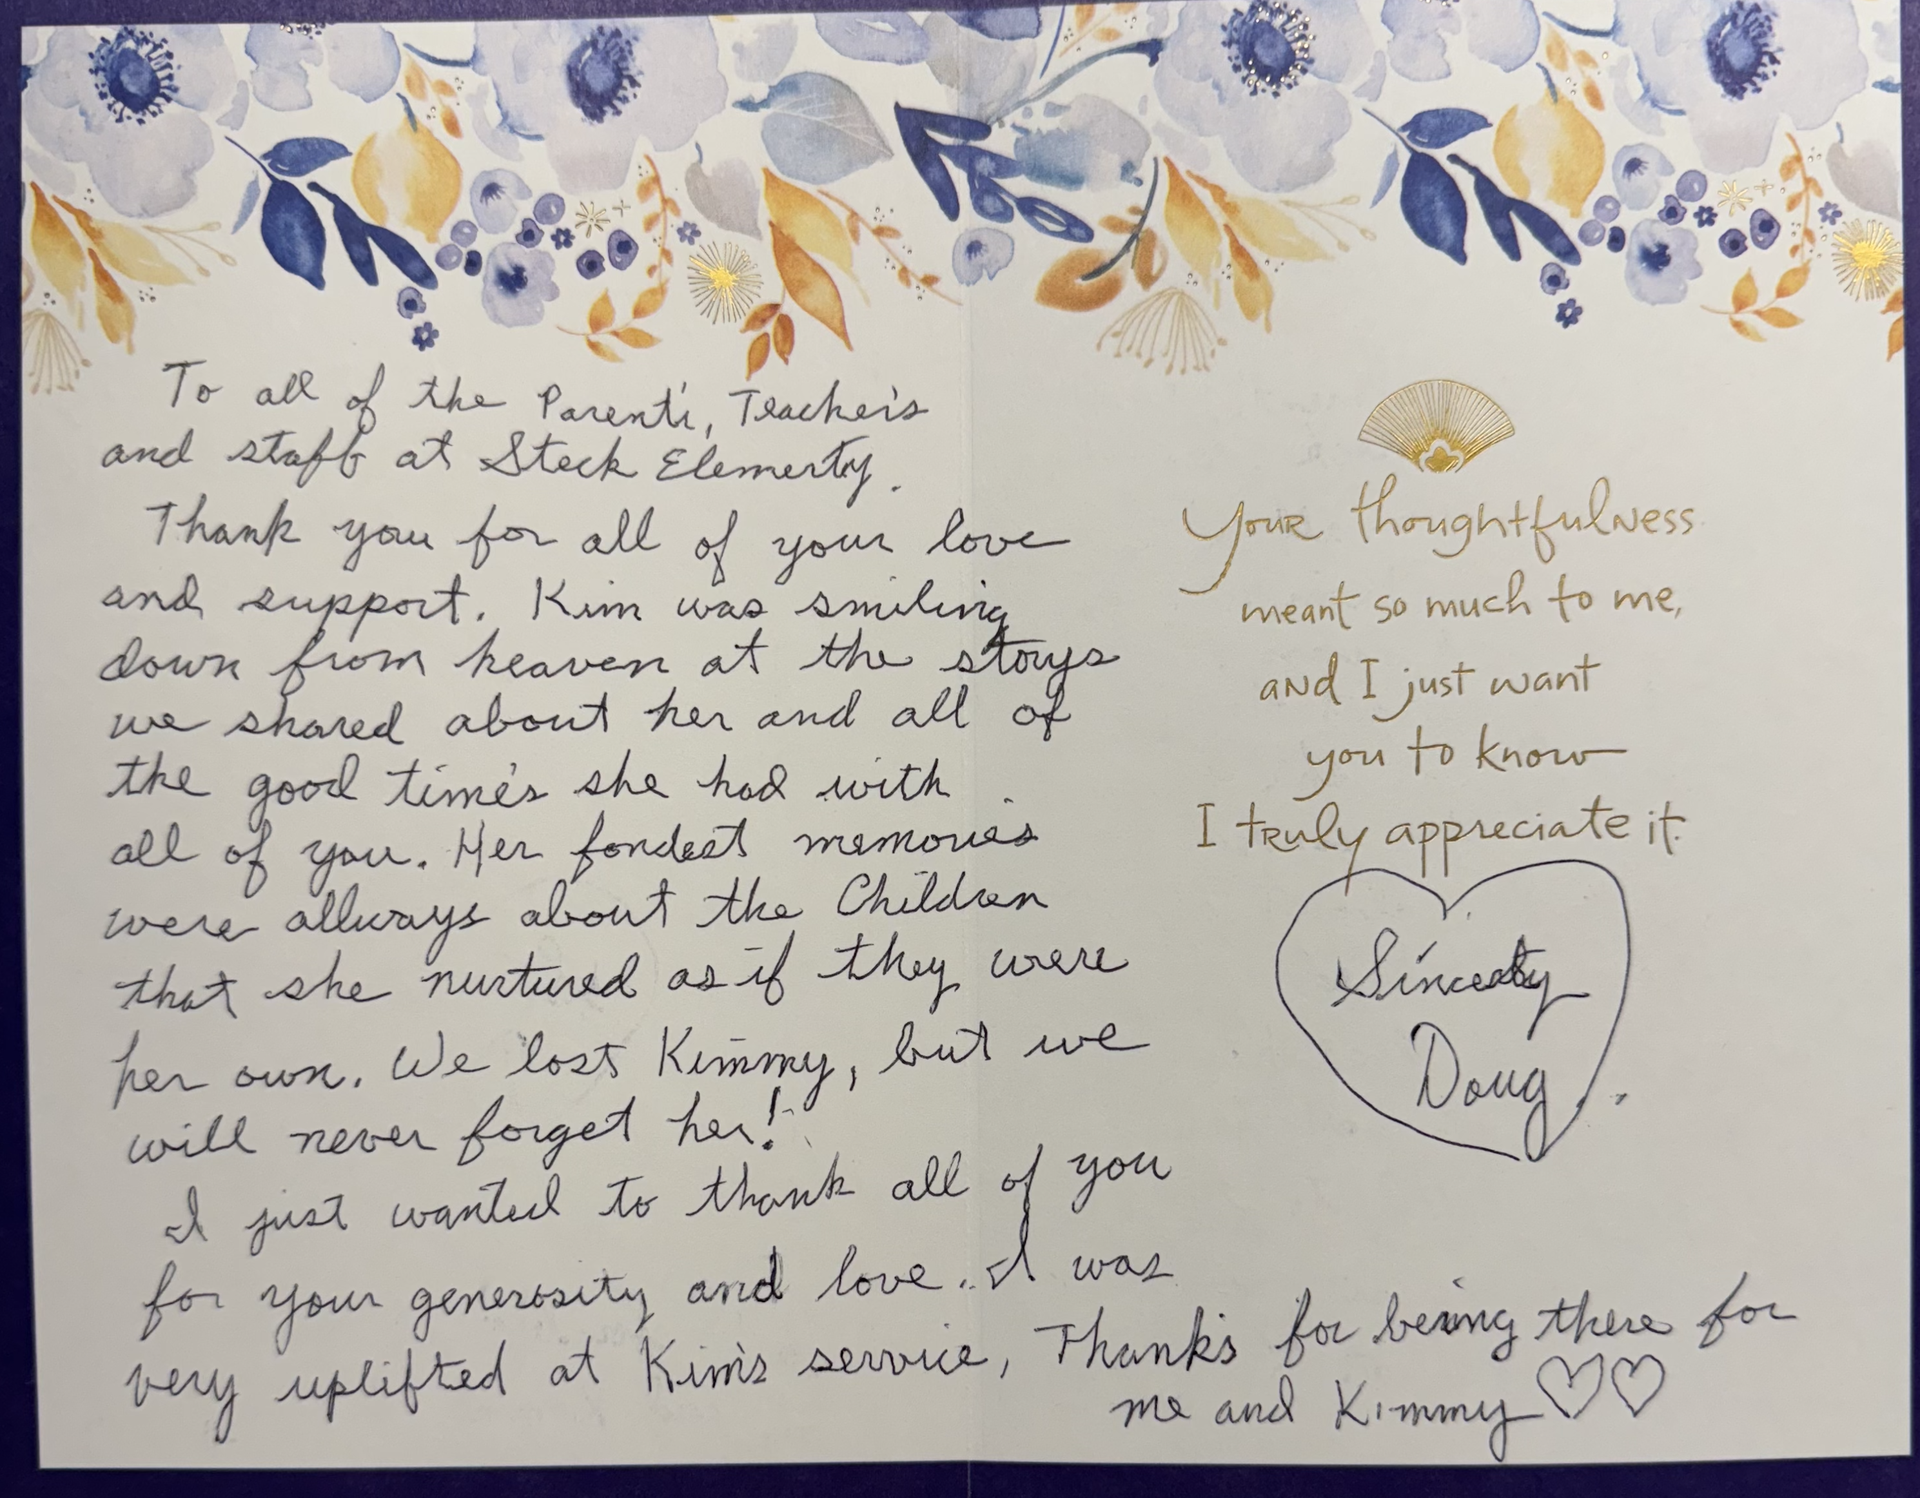 To all of the Parent's, Teacher's
and staff at Steck Elementy.
Thank you for all of your love
and support. Kim was smiling
down from heaven at the storys
we shared about her and all of
the good time's she had with
all of you. Her fondest memories
were allways about the Children
that she nurtured as if they were
her own. We lost Kimmy, but we
will never forget her!
I just wanted to thank all of you
for your generosity and love. I was
very uplifted at Kim's service, Thank's for being there for
me and Kimmy ♡♡
Your thoughtfulness
meant so much to me,
and I just want
you to know
I truly appreciate it.
Sincerly
Doug